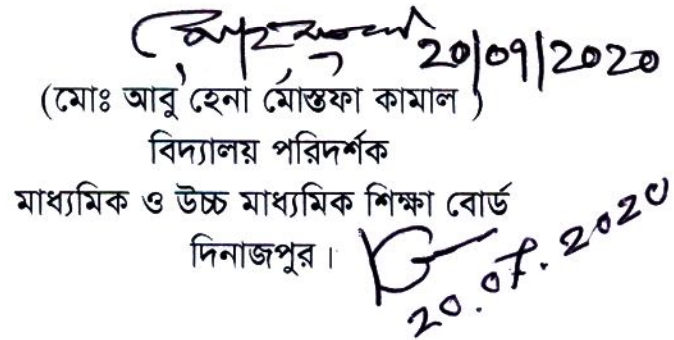 ২০/০৭/২০২০
(মোঃ আবু হেনা মোস্তফা কামাল )
বিদ্যালয় পরিদর্শক
মাধ্যমিক ও উচ্চ মাধ্যমিক শিক্ষা বোর্ড
দিনাজপুর।
20.07.2020